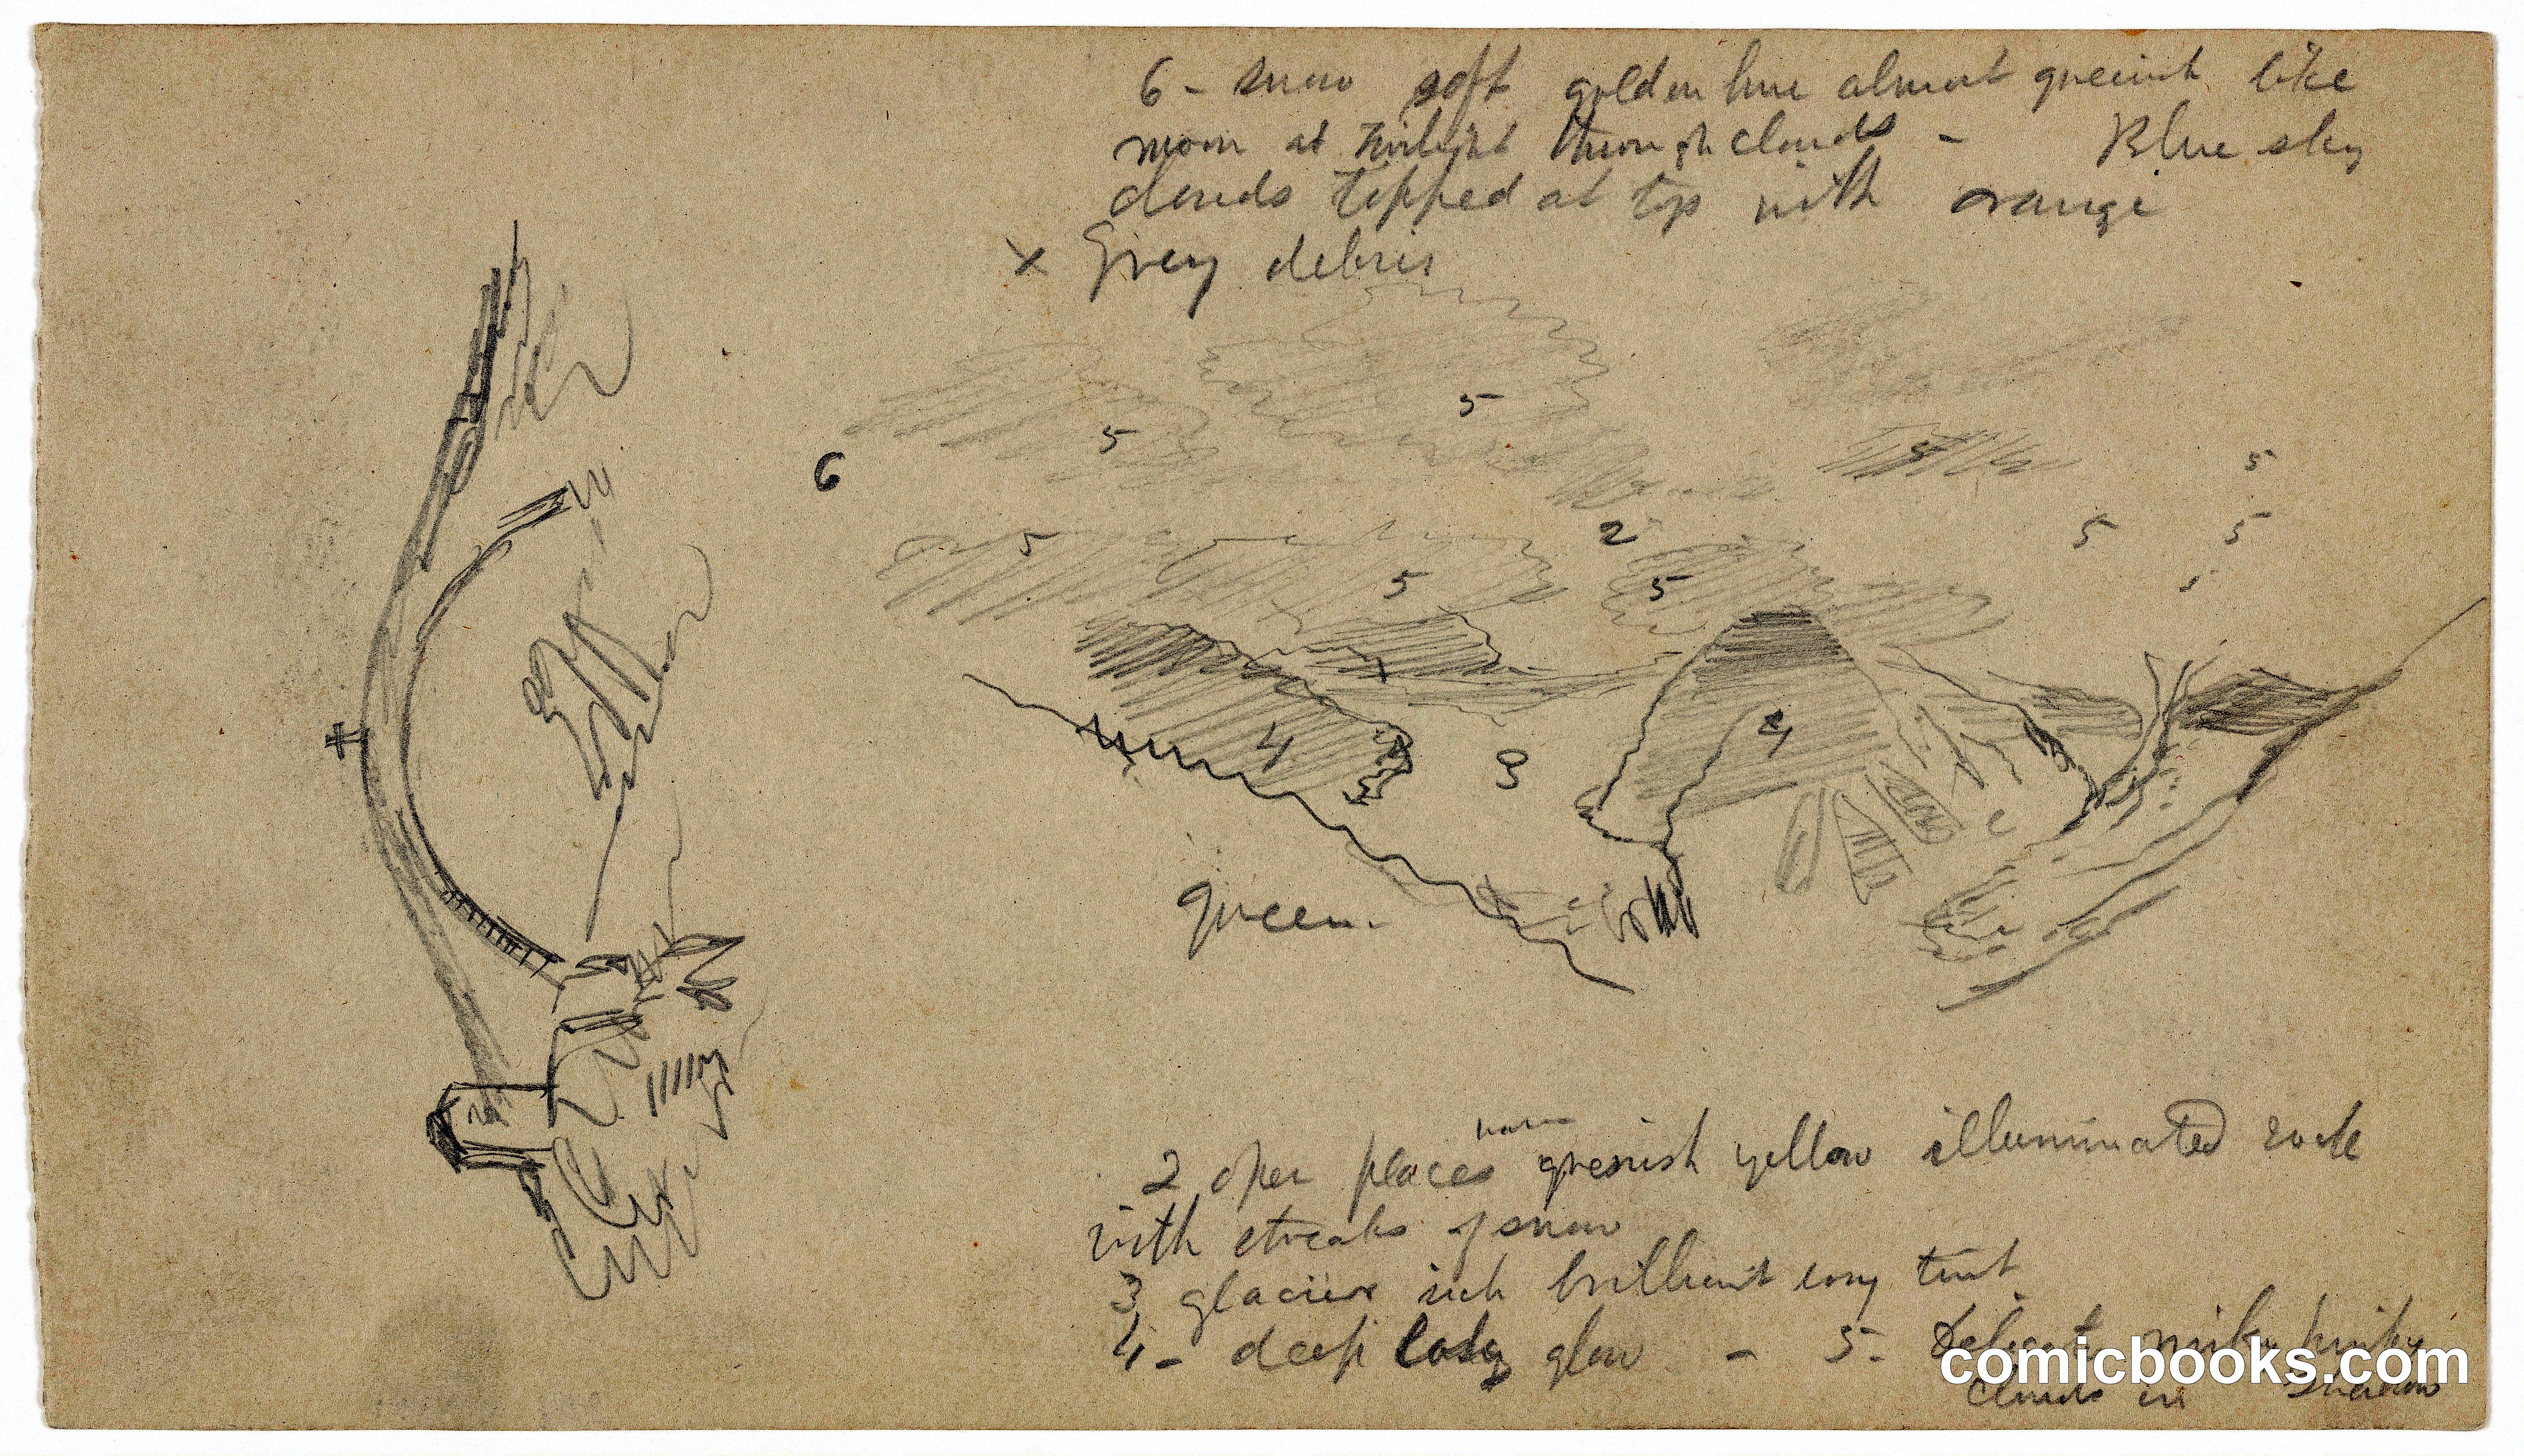 6 - snow soft golden hue almost greenish like
moon at twilight through clouds - Blue sky
clouds tipped at top with orange
x Grey debris
5
5
6
5
5
2
5
5
5
5
5
4
3
4
green
2 open places warm greenish yellow illuminated rock
with streaks of snow
3 glacier rich brilliant rosy tint
4 - deep rosy glow - 5 - Delicate milky pinky
clouds in shadow
comicbooks.com